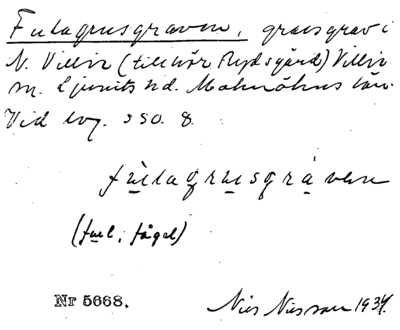 Fulagrusgraven, grusgrav i
N. Villie (tillhör Rydsgård) Villie
sn. Ljunits hd. Malmöhus län.
Vid lvg. 350. 8.
fulagrusgraven
(ful, fågel)
Nr 5668. Nils Nilsson 1934.